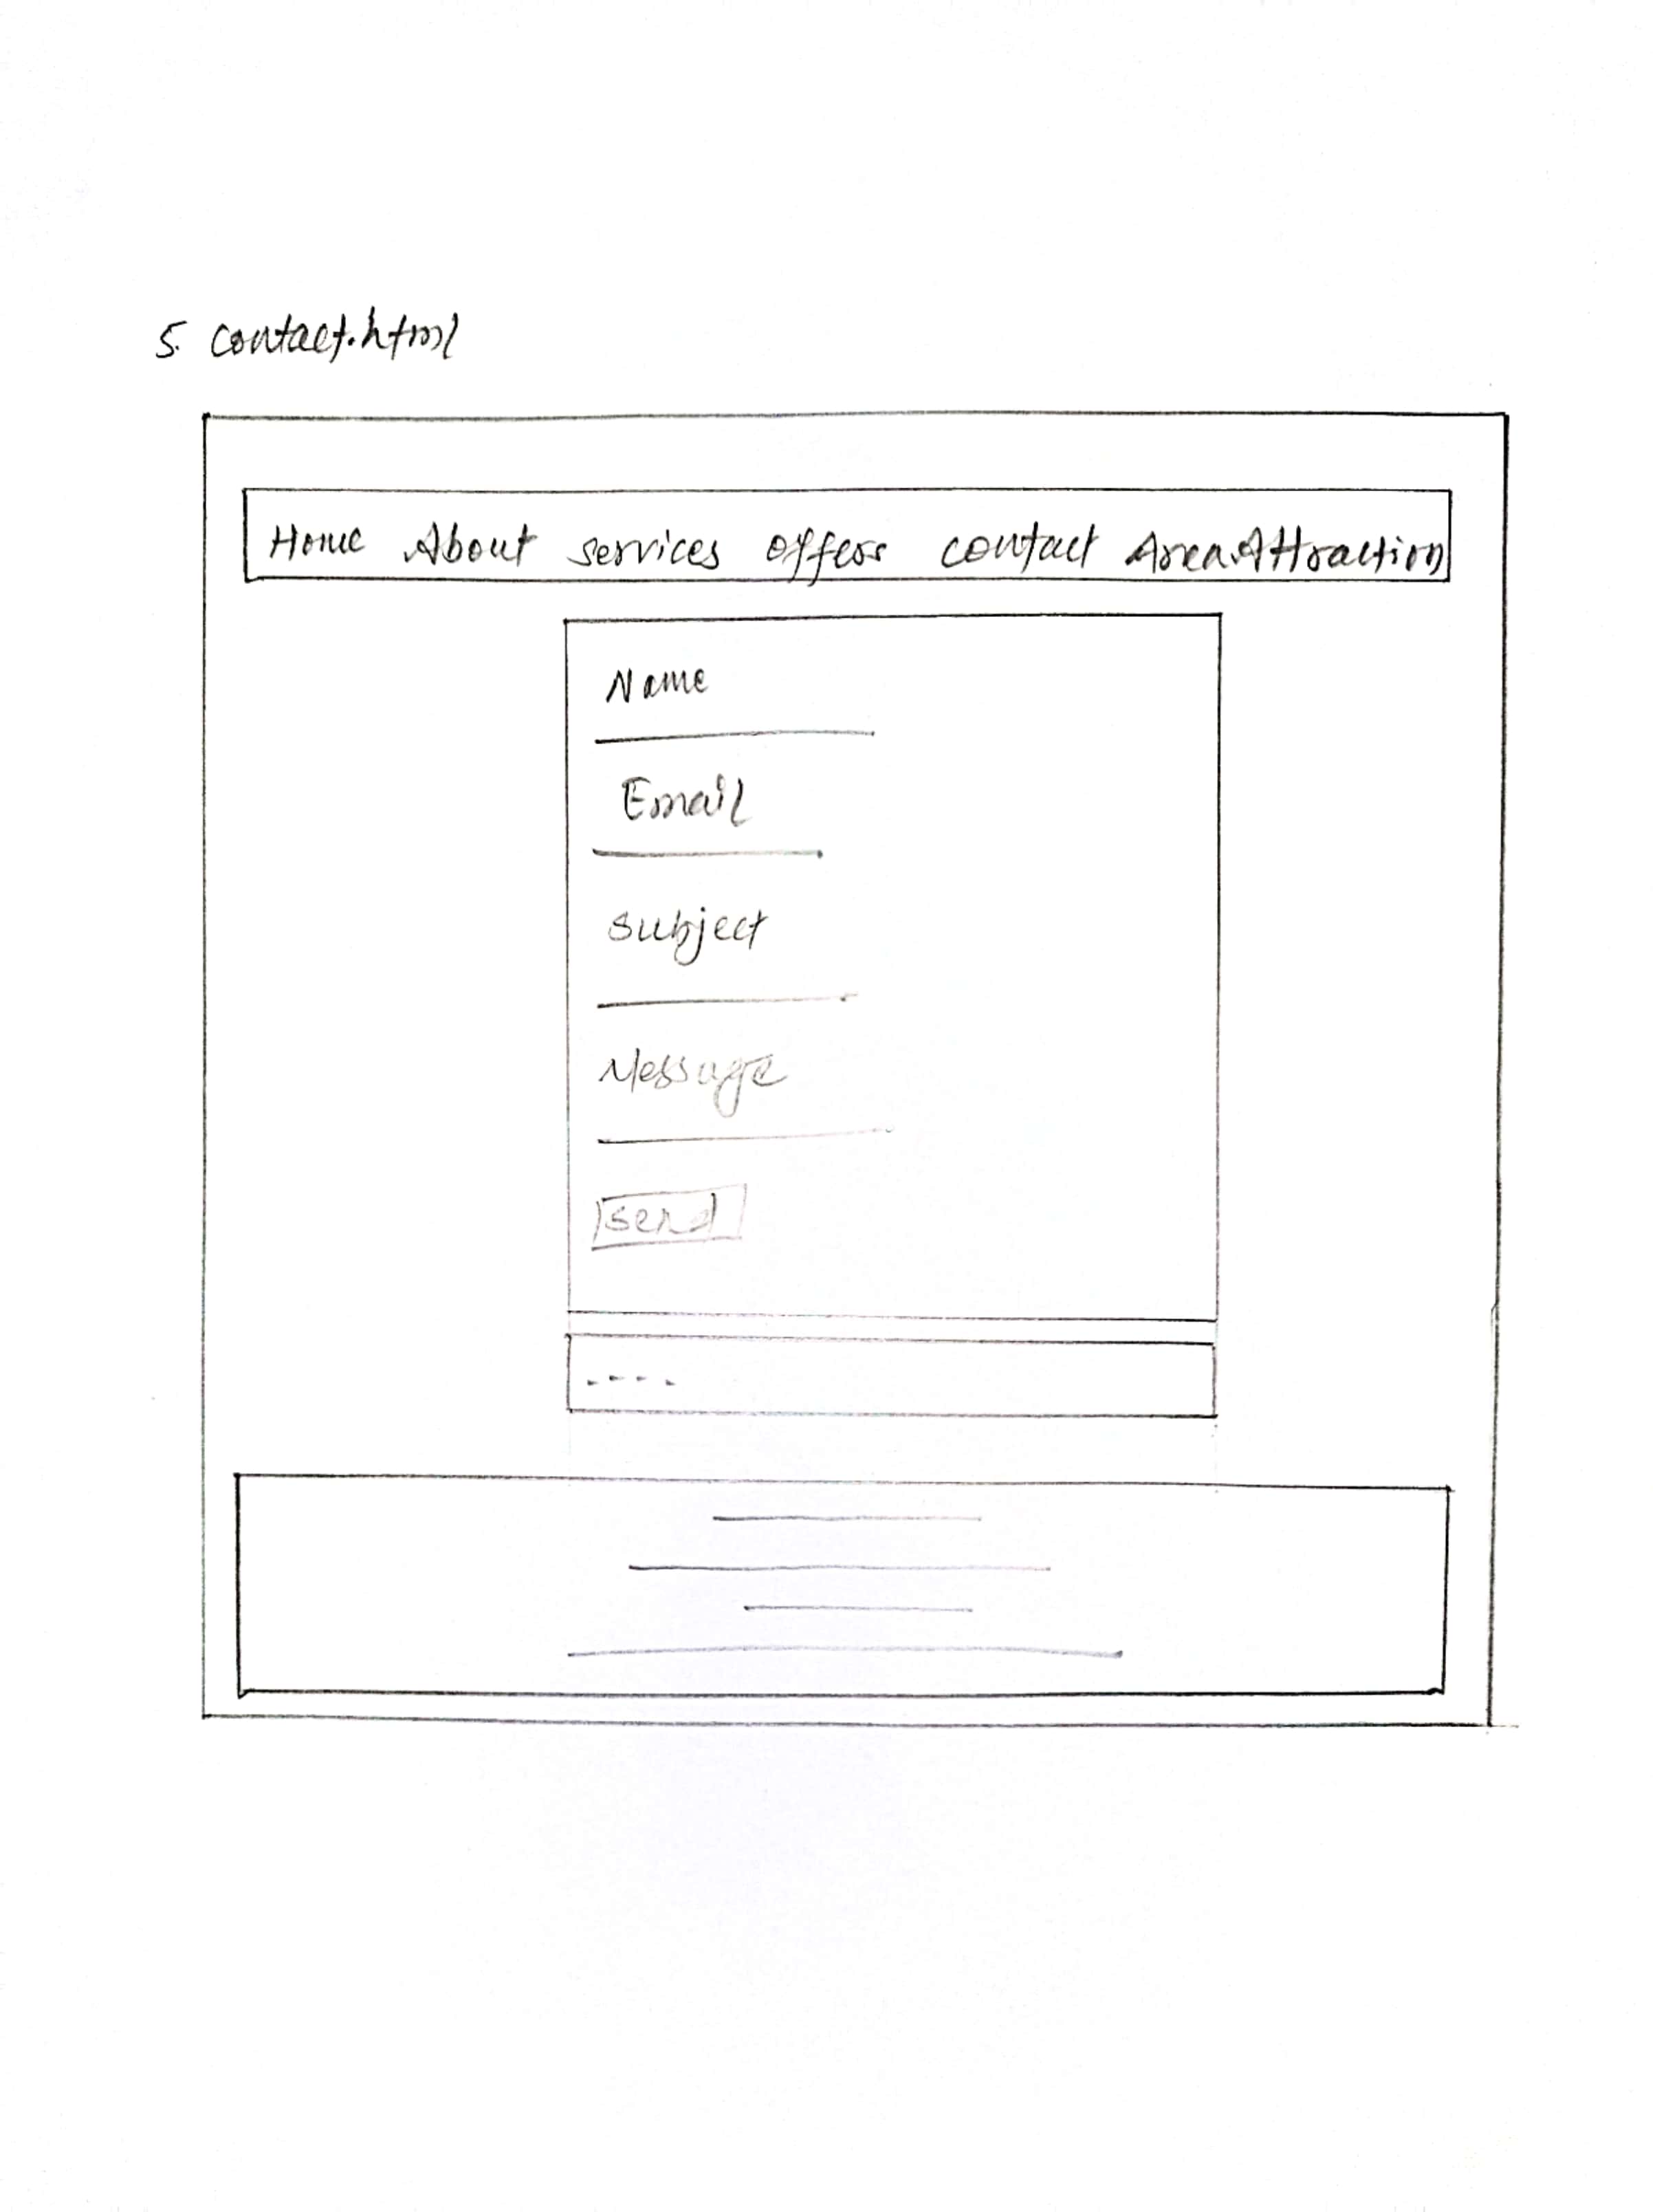 5. contact.html
Home About services offers contact Area.Attraction
Name
Email
subject
Message
send
----